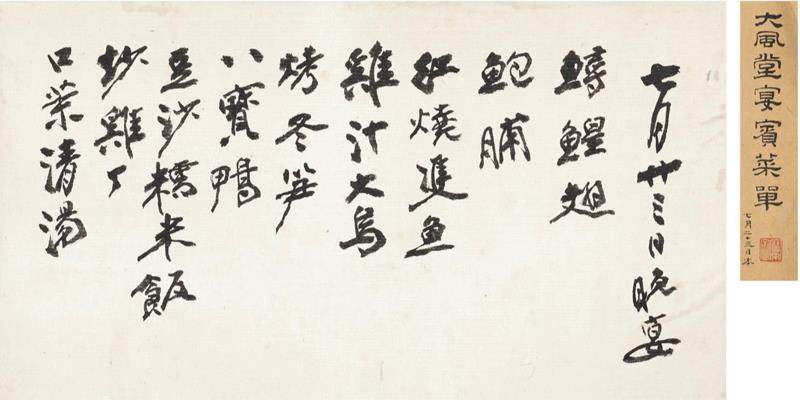 七月廿三日晚宴
鱘鰉翅
鮑脯
紅燒魚
雞汁大烏
烤冬笋
八寶鴨
豆沙糯米飯
炒雞丁
口茉清湯
大風堂宴賓菜單
七月二十三日本